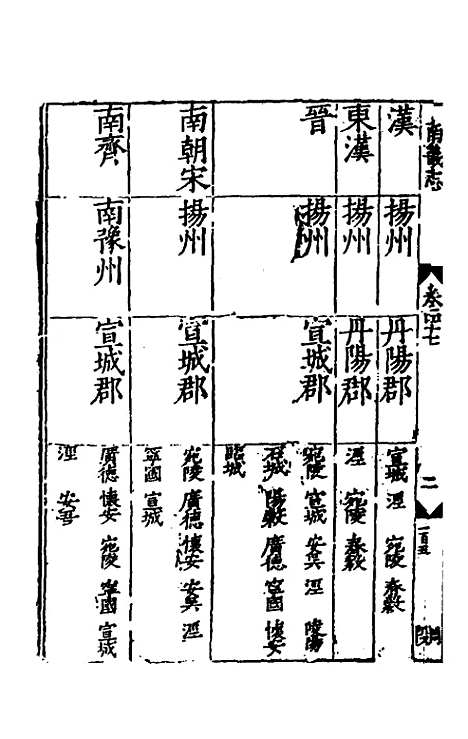 南畿志
卷四十七
二
一百五
漢
揚州
丹陽郡
宣城 涇 宛陵 春穀
東漢
揚州
丹陽郡
涇 宛陵 春穀
晉
揚州
宣城郡
宛陵 宣城 安吳 涇 陵陽
石城 陽穀 廣德 寧國 懷安
臨城
南朝宋
揚州
宣城郡
宛陵 廣德 懷安 安吳 涇
寧國 宣城
南齊
南豫州
宣城郡
廣德 懷安 宛陵 寧國 宣城
涇 安吳